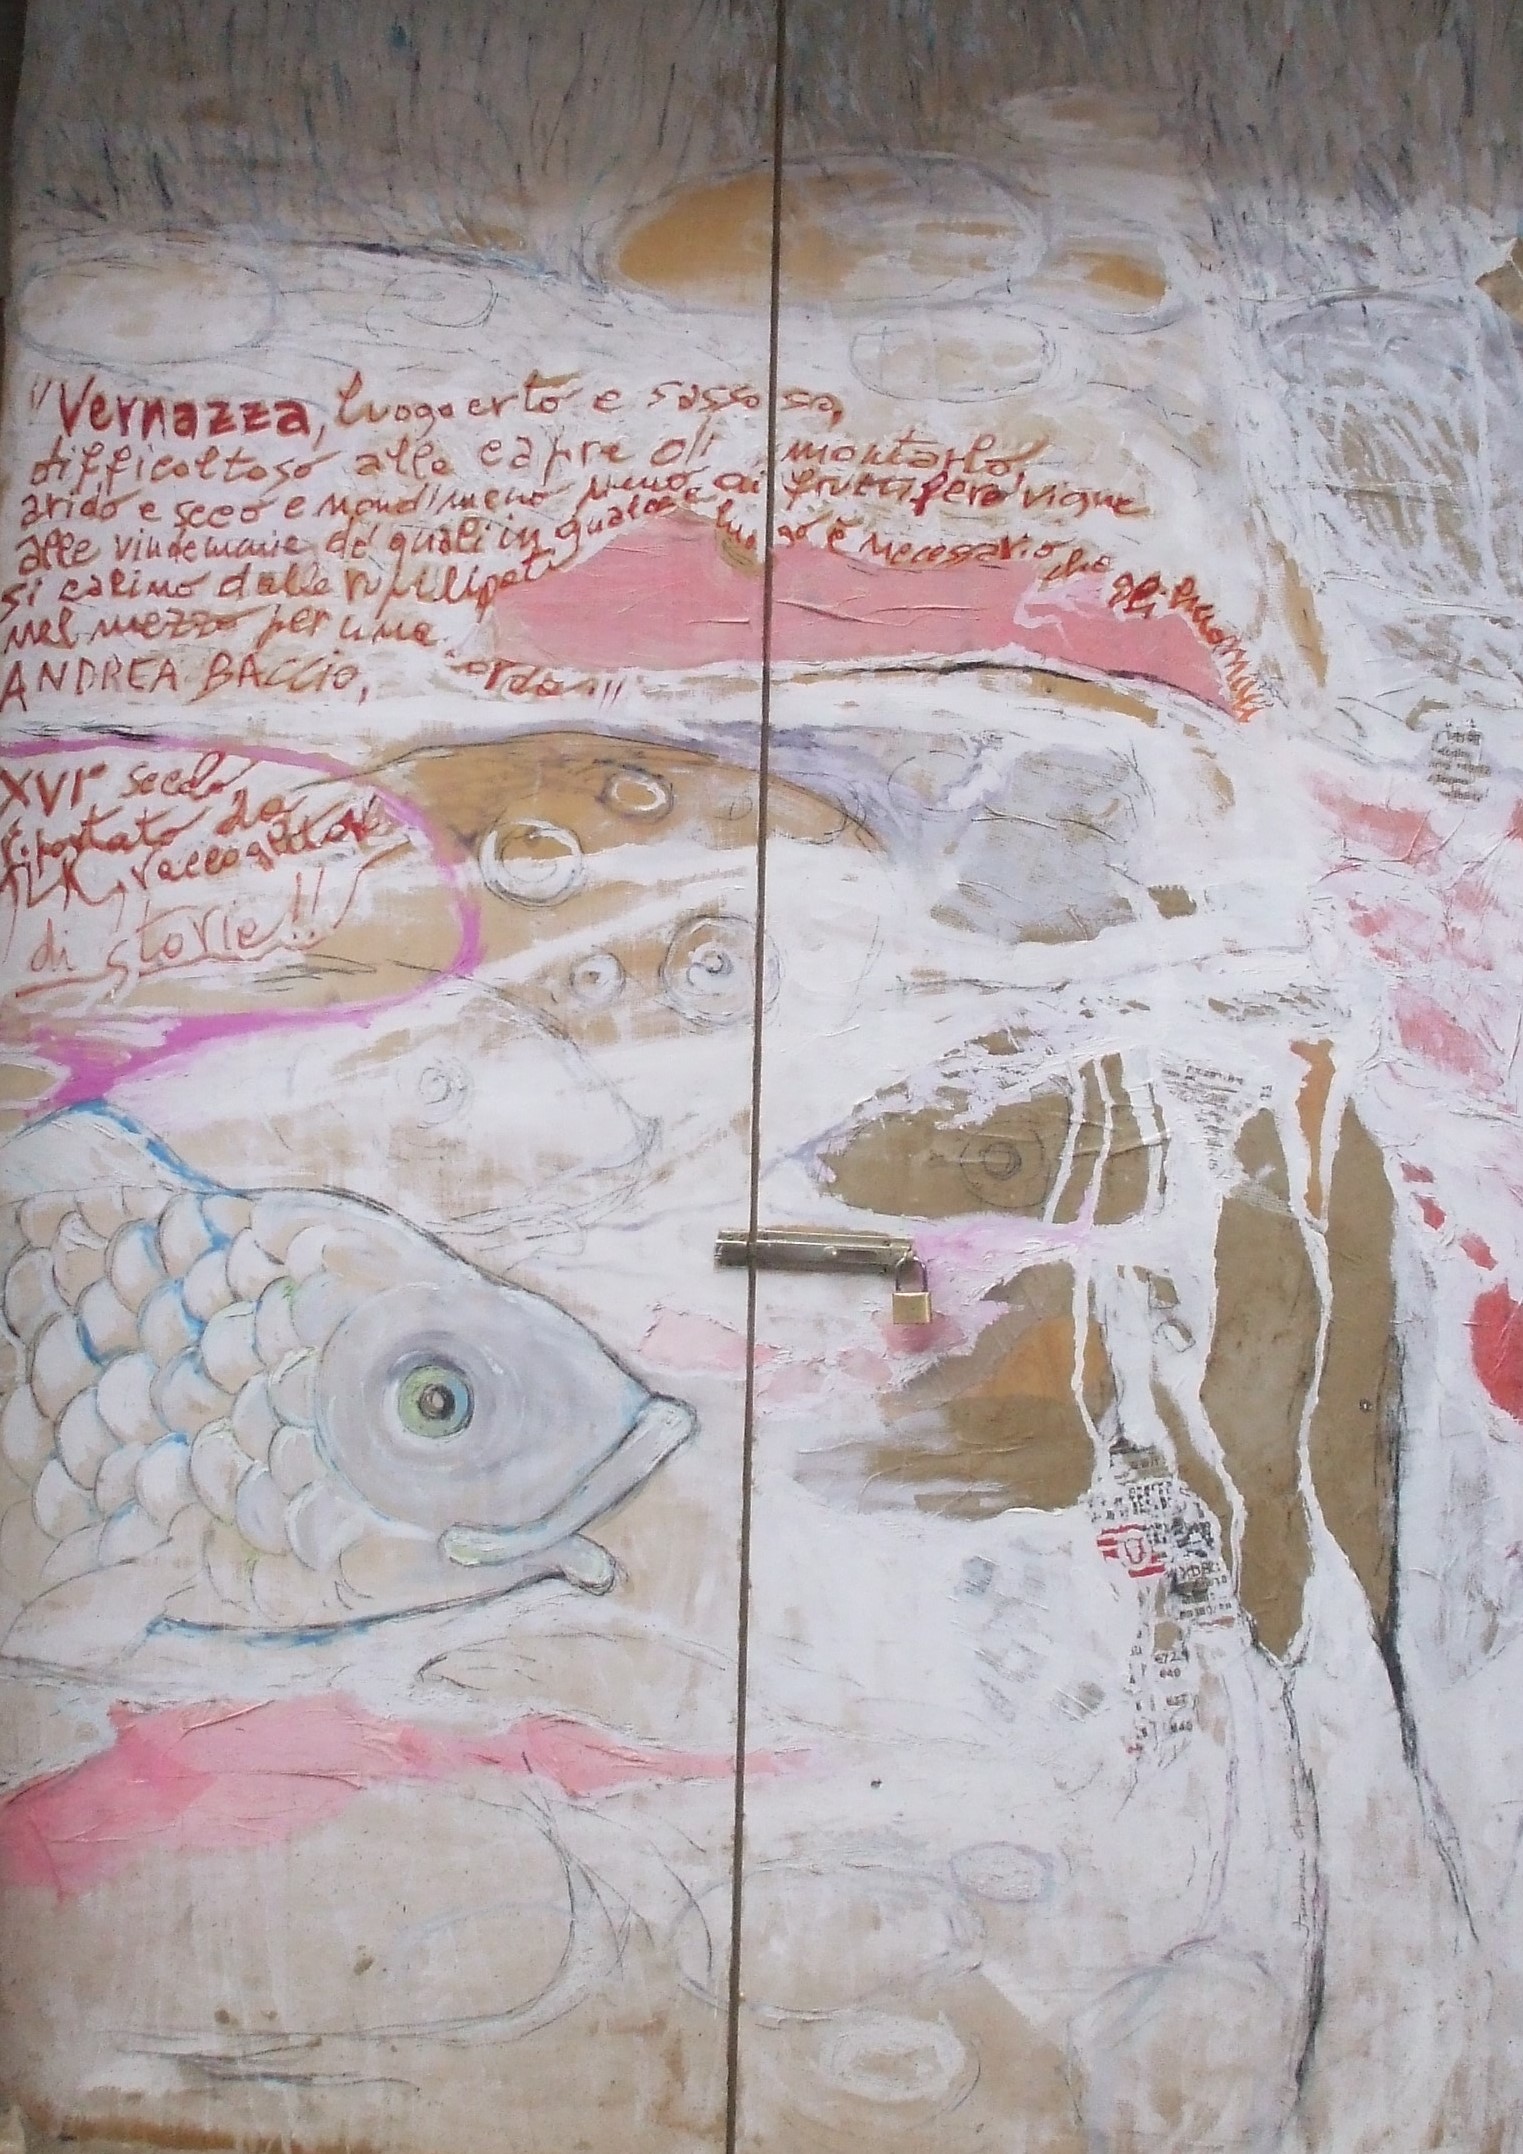 "Vernazza, luogo erto e sassoso,
difficoltoso alle capre di montarlo,
arido e secco e nondimeno pieno di fruttifere vigne
alle vindemmie de' quali in qualche luogo è necessario che gli huomini
si calino dalle rupi ligati
nel mezzo per una corda"
ANDREA BACCIO,
XVI° secolo,
riportato da
raccoglitore
di storie!!
672.
640
640